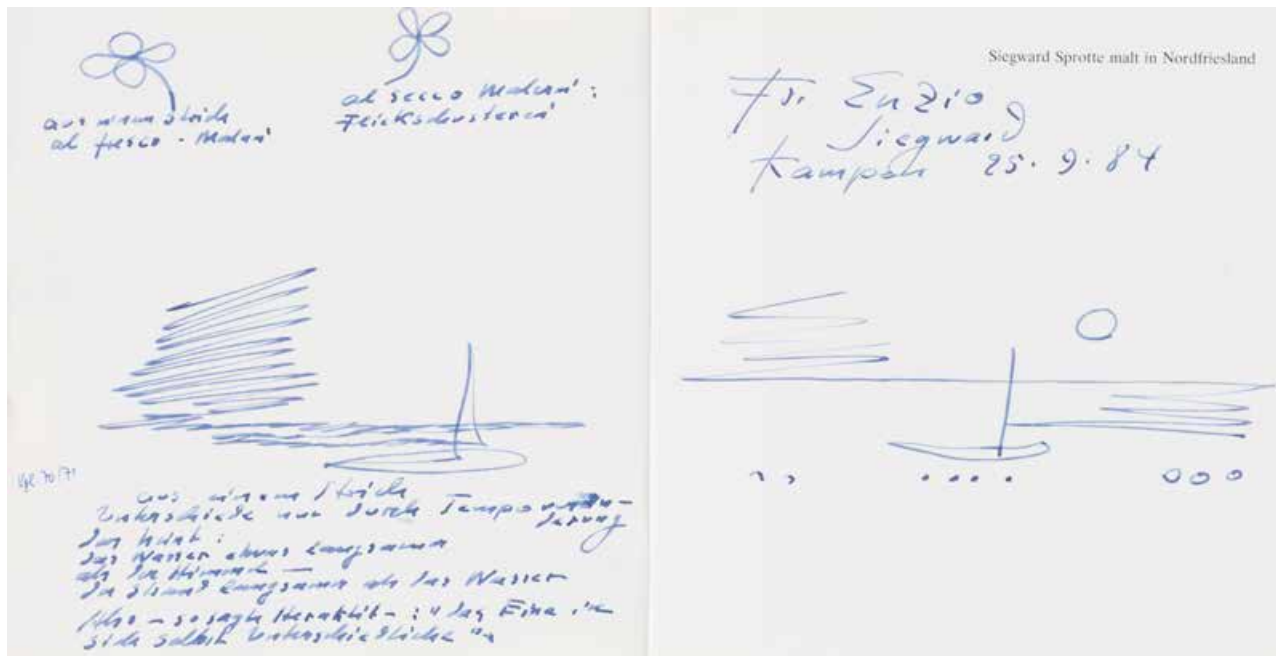 aus einem Strich
al fresco - Malerei
al secco Malerei :
Flickschusterei
Vgl. 70/71
aus einem Strich
Unterschiede nur durch Tempoveränderung
der Hand :
das Wasser etwas langsamer
als der Himmel —
der Strand langsamer als das Wasser
Also – so sagte Heraklit – : "das Eine in
sich selbst Unterschiedliche"
Siegward Sprotte malt in Nordfriesland
Fr. Enzio
Siegward
Kampen 25. 9. 84